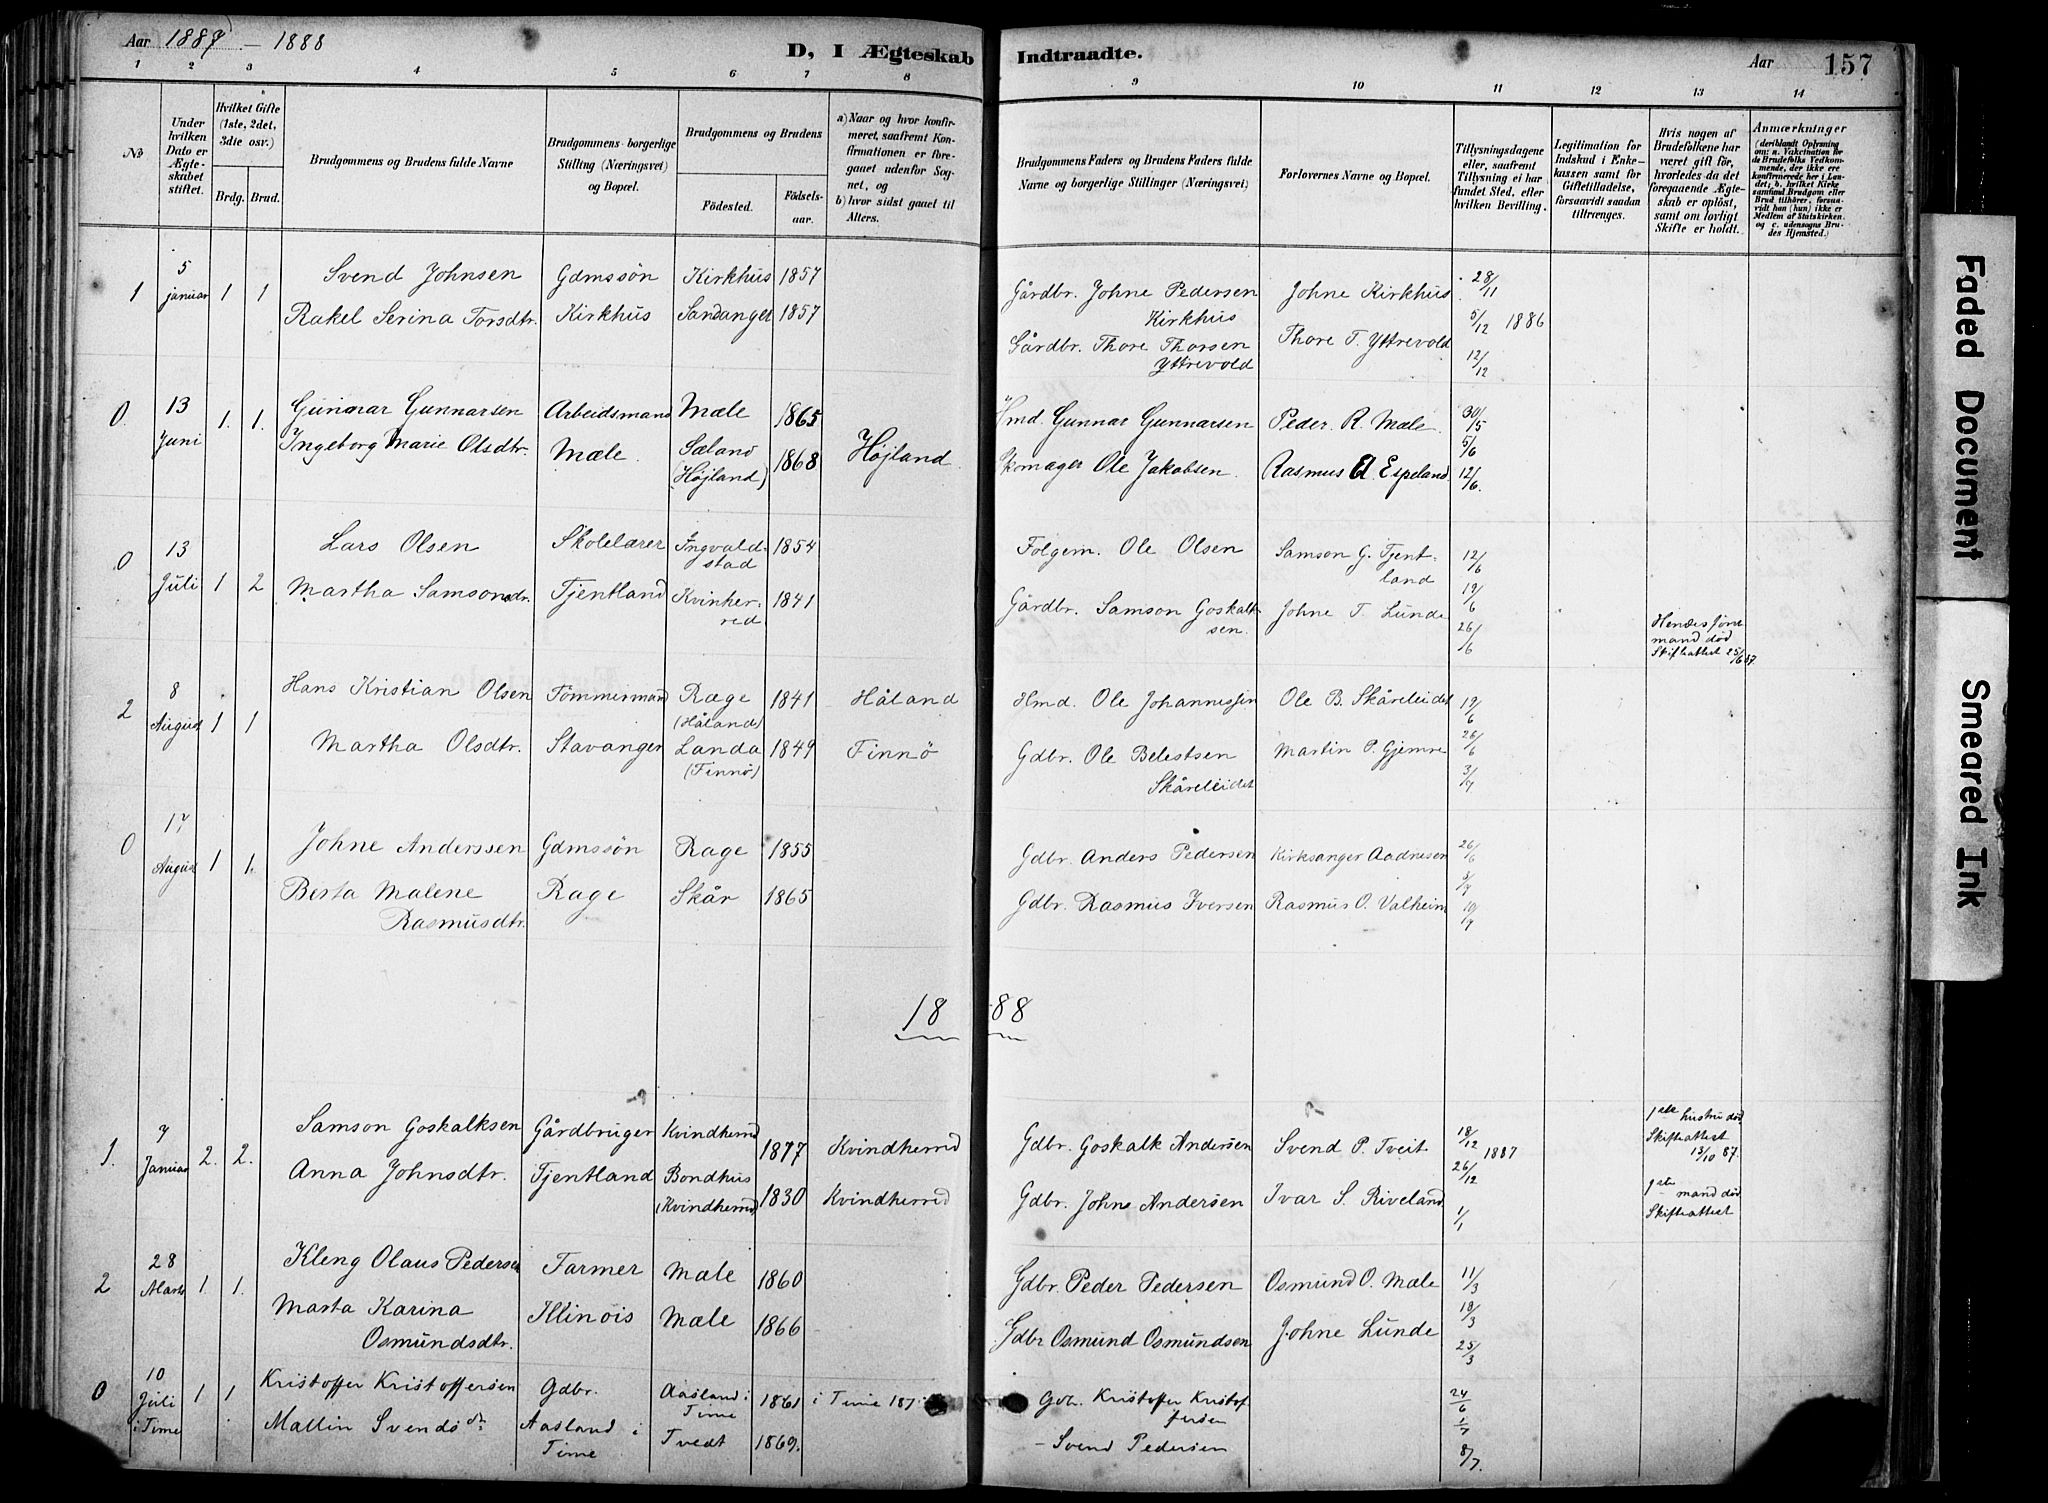 Aar 1887 - 1888
D, I Ægteskab Indtraadte.
Aar
157
1 2 3 4 5 6 7 8 9 10 11 12 13 14
No
Under hvilken Dato er Ægteskabet stiftet.
Hvilket Gifte (1ste, 2det, 3die osv.)
Brdg. Brud.
Brudgommens og Brudens fulde Navne
Brudgommens borgerlige Stilling (Næringsvei) og Bopæl.
Brudgommens og Brudens
Fødested.
Fødselsaar.
a) Naar og hvor konfirmeret, saafremt Konfirmationen er foregaaet udenfor Sognet, og
b) hvor sidst gaaet til Alters.
Brudgommens Faders og Brudens Faders fulde Navne og borgerlige Stillinger (Næringsvei)
Forlovernes Navne og Bopæl.
Tillysningsdagene eller, saafremt Tillysning ei har fundet Sted, efter hvilken Bevilling.
Legitimation for Indskud i Enkekassen samt for Giftetilladelse, forsaavidt saadan tiltrænges.
Hvis nogen af Brudefolkene har været gift før, hvorledes da det foregaaende Ægteskab er opløst, samt om lovligt Skifte er holdt.
Anmærkninger (deriblandt Oplysning om: a. Vakcination for de Brudefolks Vedkommende, der ikke ere konfirmerede her i Landet, b. hvilket Kirkesamfund Brudgom eller Brud tilhører, forsaavidt han (hun) ikke er Medlem af Statskirken, og c. udensogns Brudes Hjemsted.)
1 5 januar 1 1 Svend Johnsen Gdmssön Kirkhus 1857 Gårdbr. Johne Pedersen Kirkhus Johne Kirkhus 28/11
Rakel Serina Torsdtr. Kirkhus Sandanger 1857 Gårdbr. Thore Thorsen Yttrevold Thore T. Yttrevold 5/12 1886 12/12
0. 13 Juni 1. 1. Gunnar Gunnarsen Arbeidsmand Mæle 1865 Hmd. Gunnar Gunnarsen Peder. R. Mæle. 30/5
Ingeborg Marie Olsdtr. Mæle. Sæland (Højland) 1868 Højland. Skomager Ole Jakobsen. Rasmus Espeland 5/6 12/6.
0 13 Juli 1 2 Lars Olsen Skolelærer Ingvaldstad 1854 Folgem. Ole Olsen Samson G. Tjentland 12/6
Martha Samsonsdr. Tjentland Kvinherred 1841 Gårdbr. Samson Goskalksen. Johne T. Lunde 19/6 26/6 Hendes förs mand död Skifteattest 25/6 87.
2 8 August 1 1 Hans Kristian Olsen Tömmermand Ræge (Håland) 1841 Håland Hmd. Ole Johannessen Ole B. Skåreleidet 19/6
Martha Olsdtr. Stavanger Landa (Finnö) 1849 Finnö Gdbr. Ole Belestsen Skåreleidet Martin P. Gjemre 26/6 3/7
0 17 August 1 1. Johne Anderssen Gdmssön Rage 1855 Gdbr. Anders Pedersen Kirksanger Aadnesen 26/6
Berta Malene Rasmusdtr. Rage Skår 1865 Gdbr. Rasmus Iversen Rasmus O. Valheim 3/7 10/7
18 88
1. 7 Januar 2. 2. Samson Goskalksen Gårdbruger Kvindherred 1877 Kvindherred Gdbr. Goskalk Andersen Svend P. Tveit 18/12 1887 1ste hustru död Skifteattest 13/10 87.
Anna Johnsdtr. Tjentland Bondhus (Kvindherred) 1830 Kvindherred Gdbr. John Andersen Ivar S. Riveland 26/12 1/1 1ste mand död Skifteattest
2 28 Marts 1. 1. Kleng Olaus Pedersen Farmer Mæle 1860 Gdbr. Peder Pedersen Osmund O. Mæle 11/3
Marta Karina Osmundsdtr. Illinois Mæle 1866 Gdbr Osmund Osmundsen Johne Lunde 18/3 25/3
0 10 Juli i Time 1 1 Kristoffer Kristoffersen Gdbr. Aasland i Time 1861 i Time 187 Gdb. Kristoffer Kristoffersen 24/6
Mallin Svendsdtr Aasland i Time Tvedt 1869. - Svend Pedersen 1/7 8/7.
Faded Document
Smeared Ink